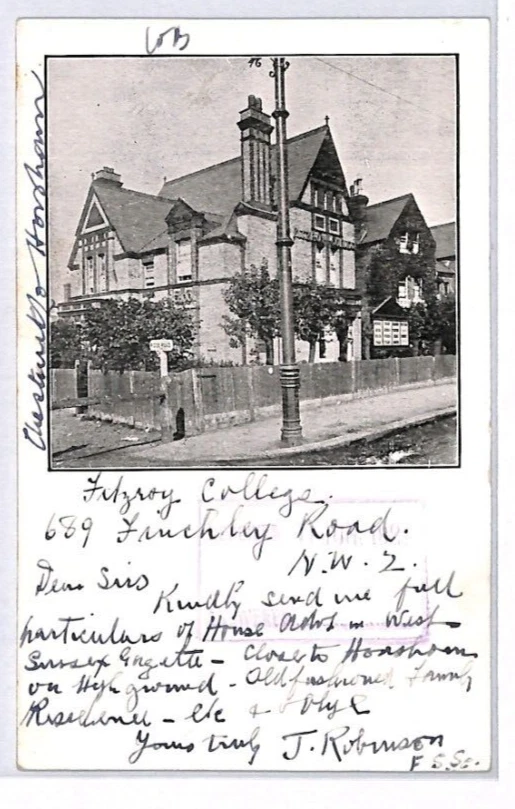 WB
Horsham
46
Fitzroy College.
689 Finchley Road.
N.W. 2.
Dear Sirs
Kindly send me full
particulars of House advt in West
Sussex Gazette - close to Horsham
on High ground - Old fashioned Family
Residence - etc &
Yours truly J. Robinson
F.S.Sc.